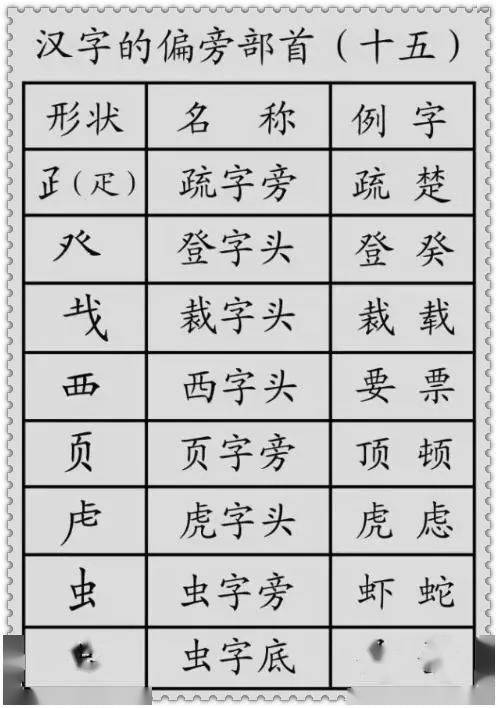 汉字的偏旁部首（十五）
形状 名 称 例 字
𤴔（疋） 疏字旁 疏 楚
癶 登字头 登 癸
𢦏 裁字头 裁 载
覀 西字头 要 票
页 页字旁 顶 顿
虍 虎字头 虎 虑
虫 虫字旁 虾 蛇
虫字底